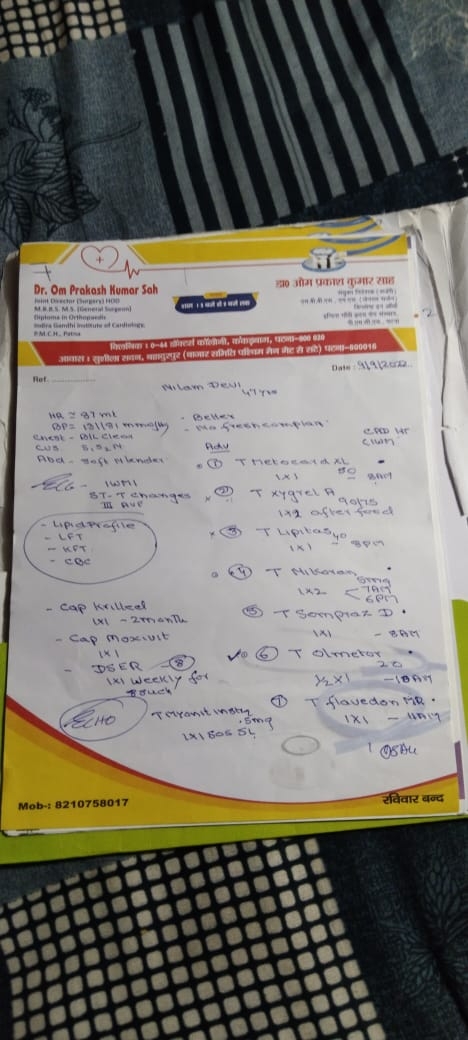 Dr. Om Prakash Kumar Sah
Joint Director (Surgery) HOD
M.B.B.S. M.S. (General Surgeon)
Diploma in Orthopaedic
Indira Gandhi Institute of Cardiology,
P.M.C.H., Patna
डा० ओम प्रकाश कुमार साह
क्लिनिक : 0-44 डॉक्टर्स कॉलोनी, कंकड़बाग, पटना-800 020
आवास : सुशीला सदन, बहादुरपुर (बाजार समिति पश्चिम मेन गेट से सटे) पटना-800016
Ref. ................
Date : 9/9/2022
Nilam Devi
47 yrs
HR ≈ 87 mt
BP = 131/81 mmHg
Chest - BIL Clear
CVS S1S2 N
Abd - Soft N tender
- Better
- No fresh complain
CAD HT
IWMI
ST-T Changes
III AVF
- Lipid Profile
- LFT
- KFT
- CBC
- Cap Krilleel
1x1 - 2 month
- Cap Moxivit
1x1
- DSER - 8
1x1 weekly for
ECHO
5mg
1x1 SOS SL
Adv
1 T Metocard XL
50
1x1 - 8AM
2 T Xygrel A
90/75
1x2 after food
3 T Lipitas 40
1x1 - 8PM
4 T Nikoran 5mg
1x2 < 7AM
6PM
5 T Sompraz D
1x1 - 8AM
6 T Olmetor
20
1/2 x1 - 10AM
7 T flavedon MR
1x1 - 11AM
Mob-: 8210758017
रविवार बन्द